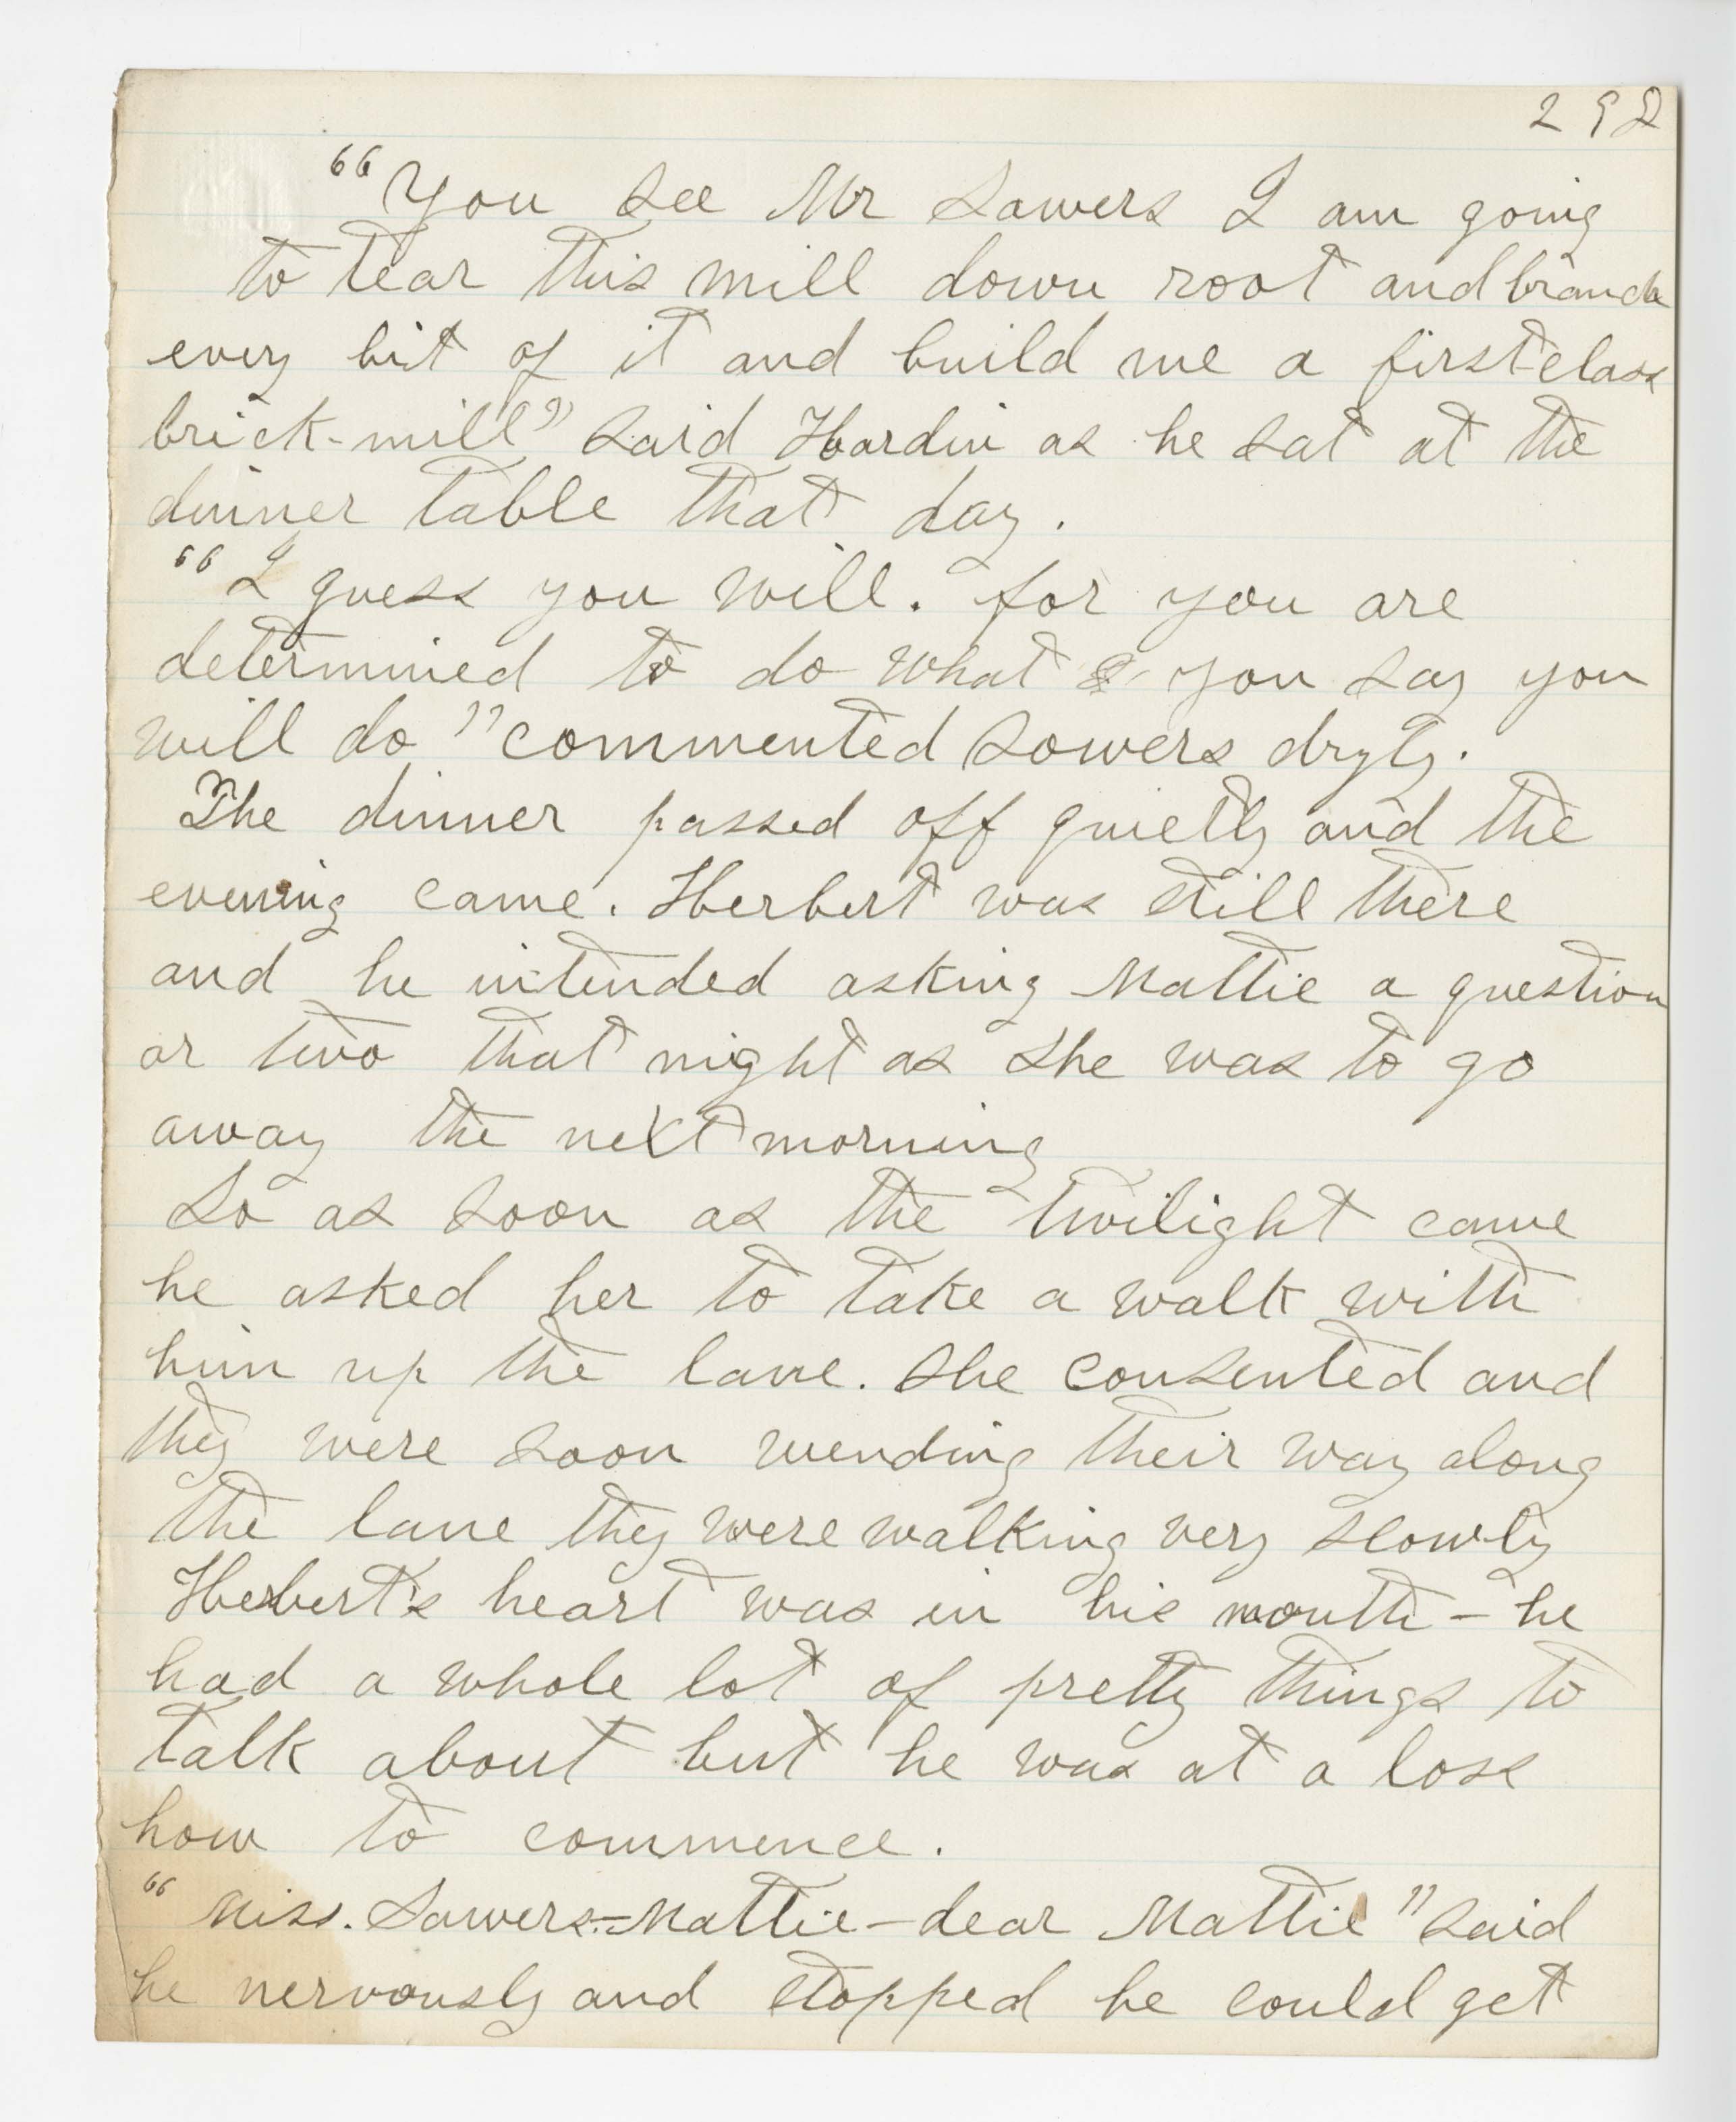 292
"You see Mr Sowers I am going
to tear this mill down root and branch
every bit of it and build me a first-class
brick-mill" said Hardin as he sat at the
dinner table that day.
"I guess you will. for you are
determined to do what you say you
will do" commented Sowers dryly.
The dinner passed off quietly and the
evening came. Herbert was still there
and he intended asking Mattie a question
or two that night as she was to go
away the next morning
So as soon as the twilight came
he asked her to take a walk with
him up the lane. She consented and
they were soon wending their way along
the lane they were walking very slowly
Herbert's heart was in his mouth - he
had a whole lot of pretty things to
talk about but he was at a loss
how to commence.
"Miss. Sowers.-Mattie-dear Mattie" said
he nervously and stopped he could get